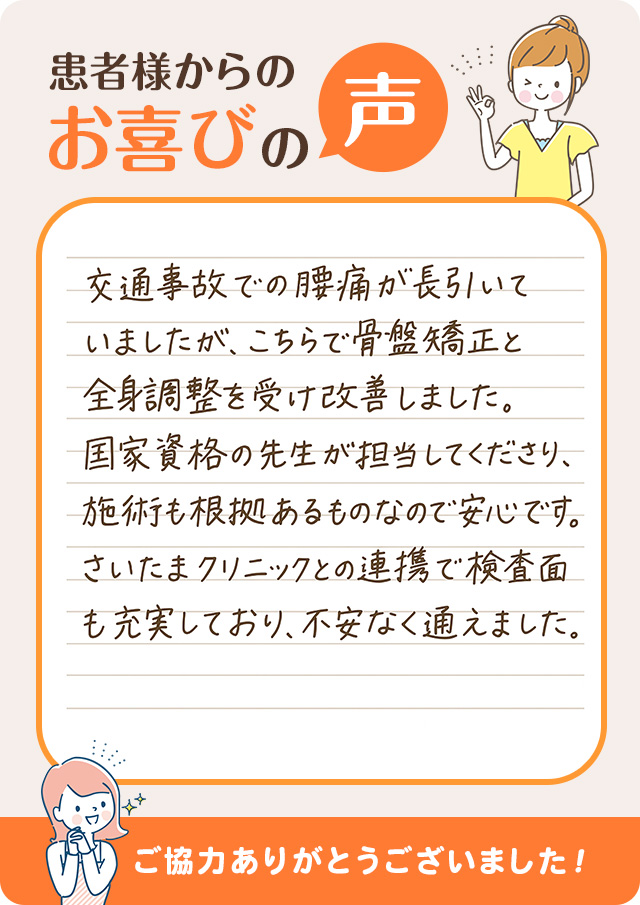 患者様からの
お喜びの声
交通事故での腰痛が長引いて
いましたが、こちらで骨盤矯正と
全身調整を受け改善しました。
国家資格の先生が担当してくださり、
施術も根拠あるものなので安心です。
さいたまクリニックとの連携で検査面
も充実しており、不安なく通えました。
ご協力ありがとうございました!